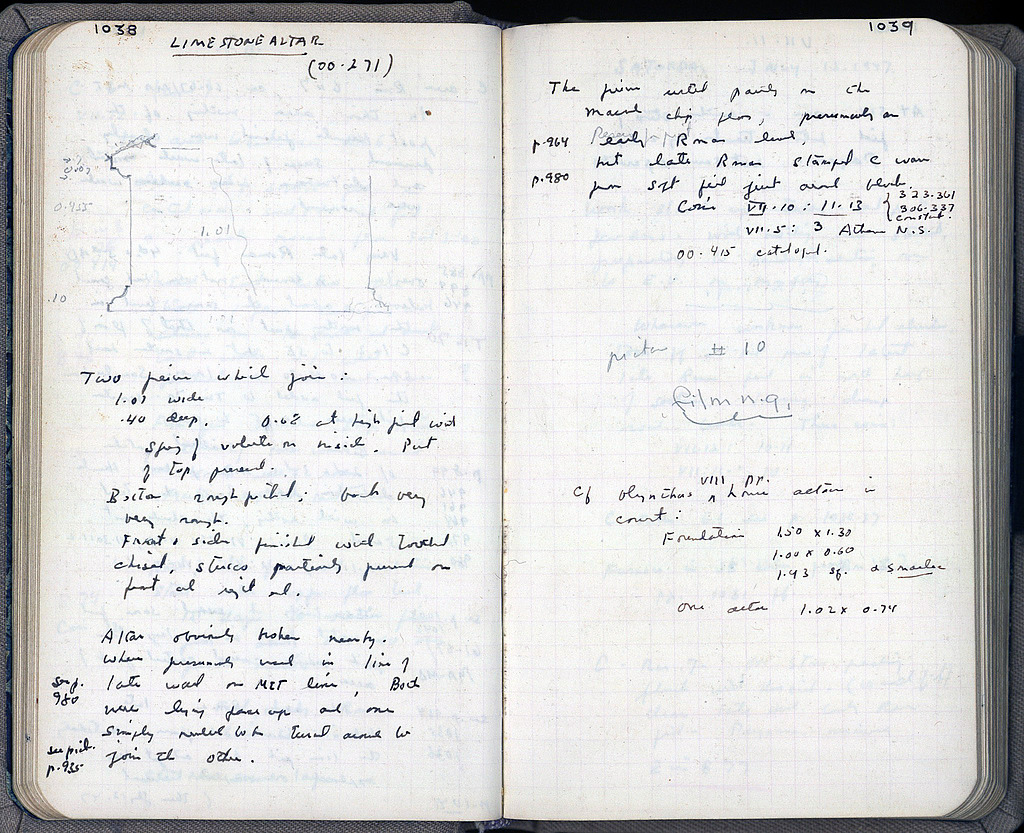 1038
LIMESTONE ALTAR
(00.271)
0.07
0.935
1.01
.10
Two pieces which join:
1.01 wide
.40 deep. 0.62 at high
volute on inside. Part
of top present.
Bottom rough; back very
very rough.
Front & sides finished with toothed
chisel, stucco partially on
front and end.
Altar obviously broken nearby.
when presumably used in line of
late wall on line, Both
were lying face up and one
simply needed to be turned around to
join the other.
see p.
980
see pict.
p. 935
1039
The pieces on the
marble chip floor, presumably an
early Roman level,
but late Roman stamped
from soft fill just around block.
p. 964
p. 980
Coins VII.10: 11.13
323.361
306.337
Constant.
VII.5: 3 Athen N.S.
00.415
picture # 10
film n.9,
Cf Olynthus VIII pp.
house in
court:
Foundation 1.50 x 1.30
1.00 x 0.60
1.43 sq. & smaller
One 1.02 x 0.74